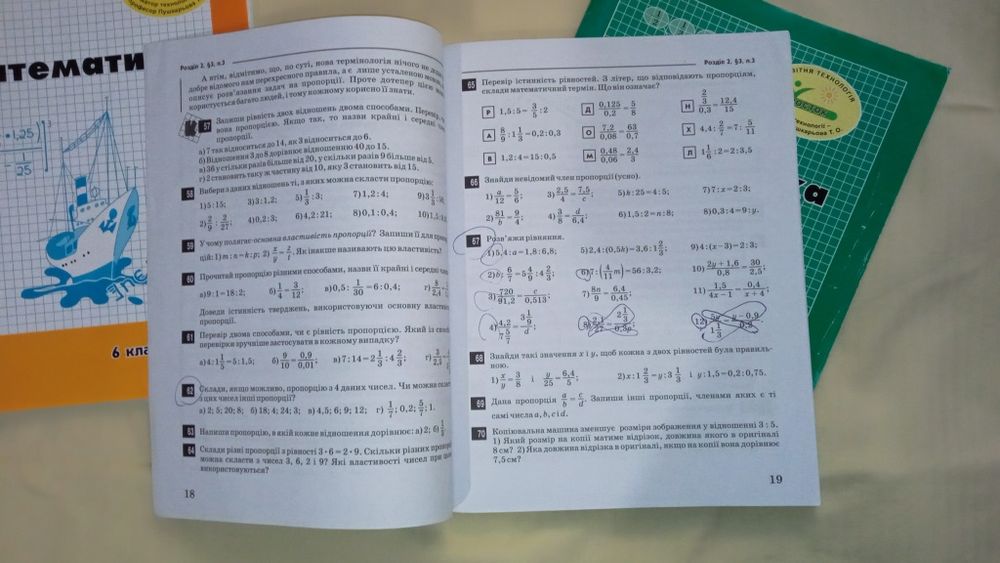 темати
6 кла
Розділ 2, §3, п.3
А втім, відмітимо, що, по суті, нова термінологія нічого не
добре відомого нам перехресного правила, а є лише усталеною
описує розв'язання задач на пропорції. Проте дотепер цією
користується багато людей, і тому кожному корисно її знати.
57 Запиши рівність двох відношень двома способами.
вона пропорцією. Якщо так, то назви крайні і середні
пропорції.
а) 7 так відноситься до 14, як 3 відноситься до 6.
б) Відношення 3 до 8 дорівнює відношенню 40 до 15.
в) 36 у скільки разів більше від 20, у скільки разів 9 більше від 5.
г) 2 становить таку ж частину від 10, яку 3 становить від 15.
58 Вибери з даних відношень ті, з яких можна скласти пропорцію:
1) 5 : 15; 3) 3 : 1,2; 5) 1/3 : 3; 7) 1,2 : 4; 9) 3 1/3 :
2) 2/9 : 2/27; 4) 0,2 : 3; 6) 4,2 : 21; 8) 0,1 : 0,4;
59 У чому полягає основна властивість пропорції? Запиши її для
цій: 1) m : n = k : p; 2) x/y = z/t. Як інакше називають цю властивість?
60 Прочитай пропорцію різними способами, назви її крайні і середні
а) 9 : 1 = 18 : 2; б) 1/4 = 3/12; в) 0,5 : 1/30 = 6 : 0,4; г)
Доведи істинність тверджень, використовуючи основну
пропорції.
61 Перевір двома способами, чи є рівність пропорцією. Який із
перевірки зручніше застосувати в кожному випадку?
а) 4 : 1 1/5 = 5 : 1,5; б) 9/10 = 0,9/0,01; в) 7 : 14 = 2 1/3 : 4 2/3; г)
62 Склади, якщо можливо, пропорцію з 4 даних чисел. Чи можна
з цих чисел інші пропорції?
а) 2; 5; 20; 8; б) 18; 4; 24; 3; в) 4,5; 6; 9; 12; г) 1/7; 0,2; 5/7; 1.
63 Напиши пропорцію, в якій кожне відношення дорівнює: а) 2; б)
64 Склади різні пропорції з рівності 3 • 6 = 2 • 9. Скільки різних
можна скласти з чисел 3, 6, 2 і 9? Які властивості чисел при
використовуються?
18
Розділ 2, §3, п.3
65 Перевір істинність рівностей. З літер, що відповідають пропорціям,
склади математичний термін. Що він означає?
Р 1,5 : 5 = 3/5 : 2 Д 0,125/0,2 = 5/8 Н 2/3/0,3 = 12,4/15
А 8/9 : 1 1/3 = 0,2 : 0,3 О 7,2/0,08 = 63/0,7 Х 4,4 : 2/7 = 7 : 5/11
В 1,2 : 4 = 15 : 0,5 М 0,48/0,06 = 2,4/3 Л 1 1/6 : 2 = 2 : 3,5
66 Знайди невідомий член пропорції (усно).
1) a/12 = 5/6; 3) 2,5/4 = 7,5/c; 5) k : 25 = 4 : 5; 7) 7 : x = 2 : 3;
2) 81/b = 9/4; 4) 3/8 = d/6,4; 6) 1,5 : 2 = n : 8; 8) 0,3 : 4 = 9 : y.
67 Розв'яжи рівняння.
1) 5,4 : a = 1,8 : 6,8; 5) 2,4 : (0,5k) = 3,6 : 1 2/3; 9) 4 : (x – 3) = 2 : 3;
2) b : 6/7 = 5 4/9 : 4 2/3; 6) 7 : (4/11 m) = 56 : 3,2; 10) 2y + 1,6/0,8 = 30/2,5;
3) 720/91,2 = c/0,513; 7) 8n/9 = 6,4/0,45; 11) 1,5/4x – 1 = 0,4/x + 4;
4) 4,2/7 5/7 = 3 1/9/d; 8) 12)
68 Знайди такі значення x і y, щоб кожна з двох рівностей була правиль-
ною.
1) x/y = 3/8 і y/25 = 6,4/5; 2) x : 1 2/3 = y : 3 1/3 і y : 1,5 = 0,2 : 0,75.
69 Дана пропорція a/b = c/d. Запиши інші пропорції, членами яких є ті
самі числа a, b, c і d.
70 Копіювальна машина зменшує розміри зображення у відношенні 3 : 5.
1) Який розмір на копії матиме відрізок, довжина якого в оригіналі
8 см? 2) Яка довжина відрізка в оригіналі, якщо на копії вона дорівнює
7,5 см?
19